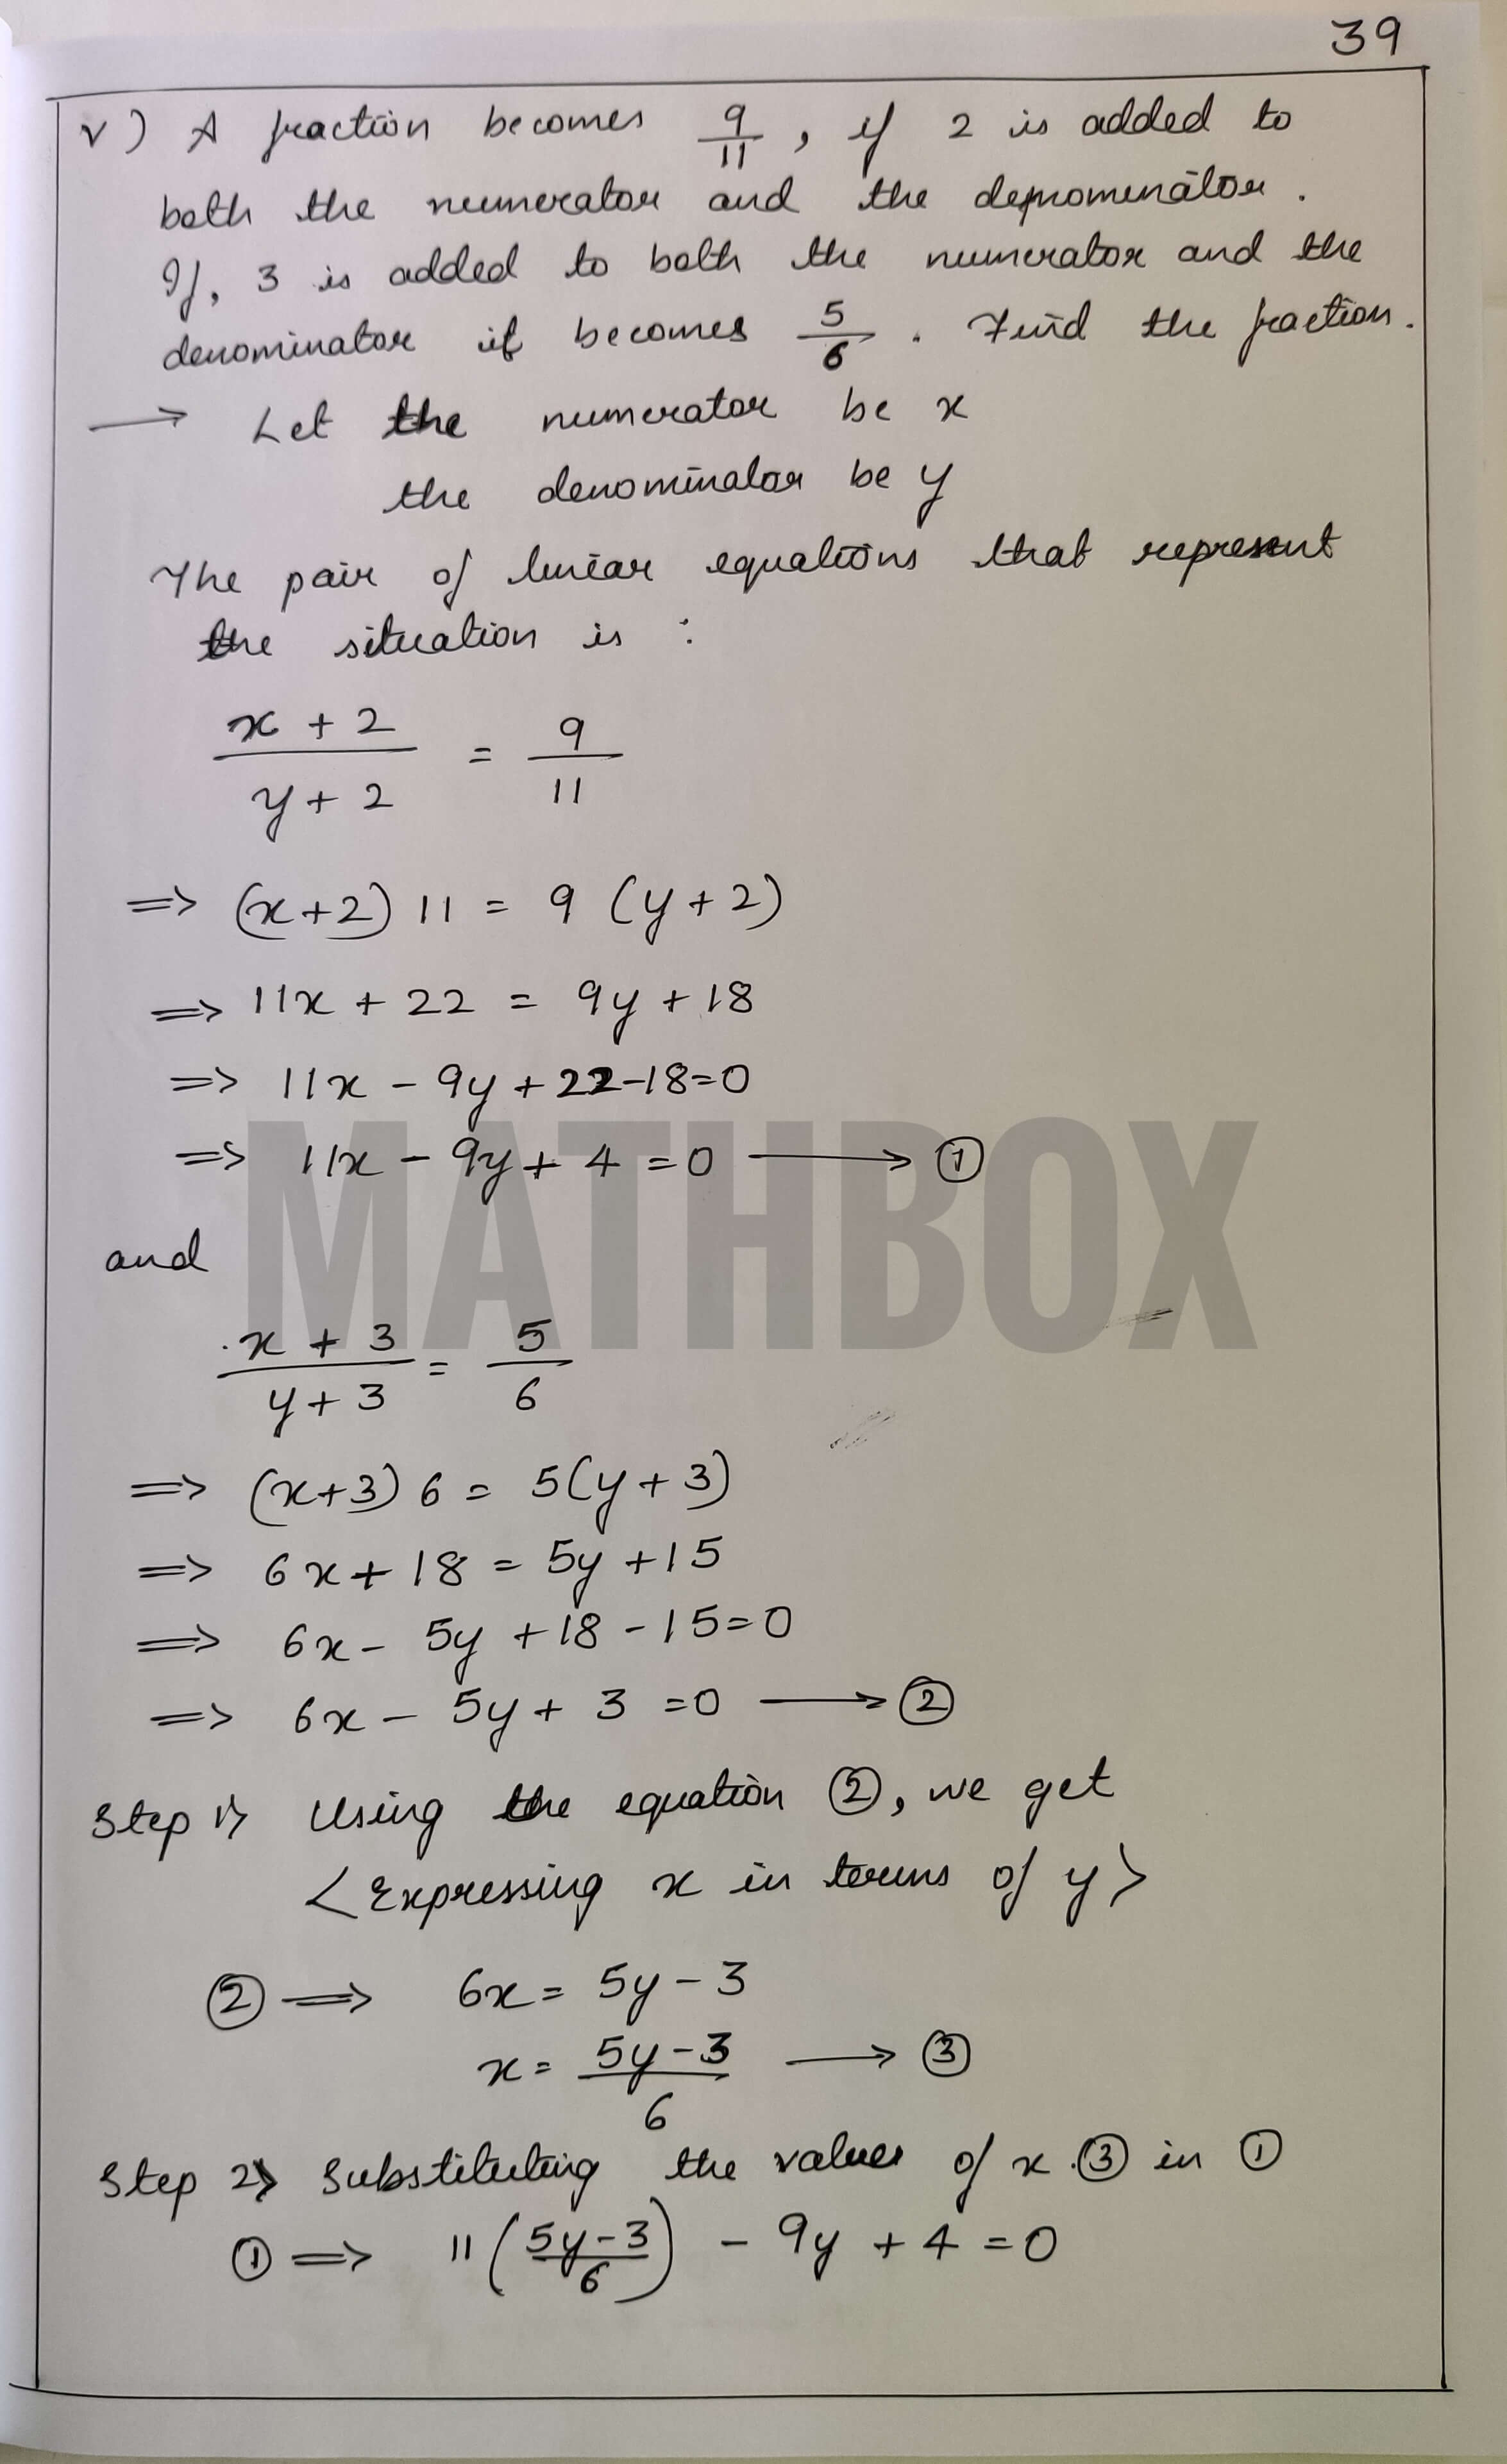 39
v) A fraction becomes 9/11, if 2 is added to
both the numerator and the denomenator.
If, 3 is added to both the numerator and the
denominator it becomes 5/6. Find the fraction.
→ Let the numerator be x
the denominator be y
The pair of linear equations that represent
the situation is :
(x + 2)/(y + 2) = 9/11
=> (x+2) 11 = 9 (y+2)
=> 11x + 22 = 9y + 18
=> 11x - 9y + 22 - 18 = 0
=> 11x - 9y + 4 = 0 → ①
and
(x + 3)/(y + 3) = 5/6
=> (x+3) 6 = 5(y+3)
=> 6x + 18 = 5y + 15
=> 6x - 5y + 18 - 15 = 0
=> 6x - 5y + 3 = 0 → ②
Step 1> Using the equation ②, we get
<Expressing x in terms of y>
② => 6x = 5y - 3
x = (5y - 3)/6 → ③
Step 2> Substituting the values of x ③ in ①
① => 11((5y-3)/6) - 9y + 4 = 0
MATHBOX